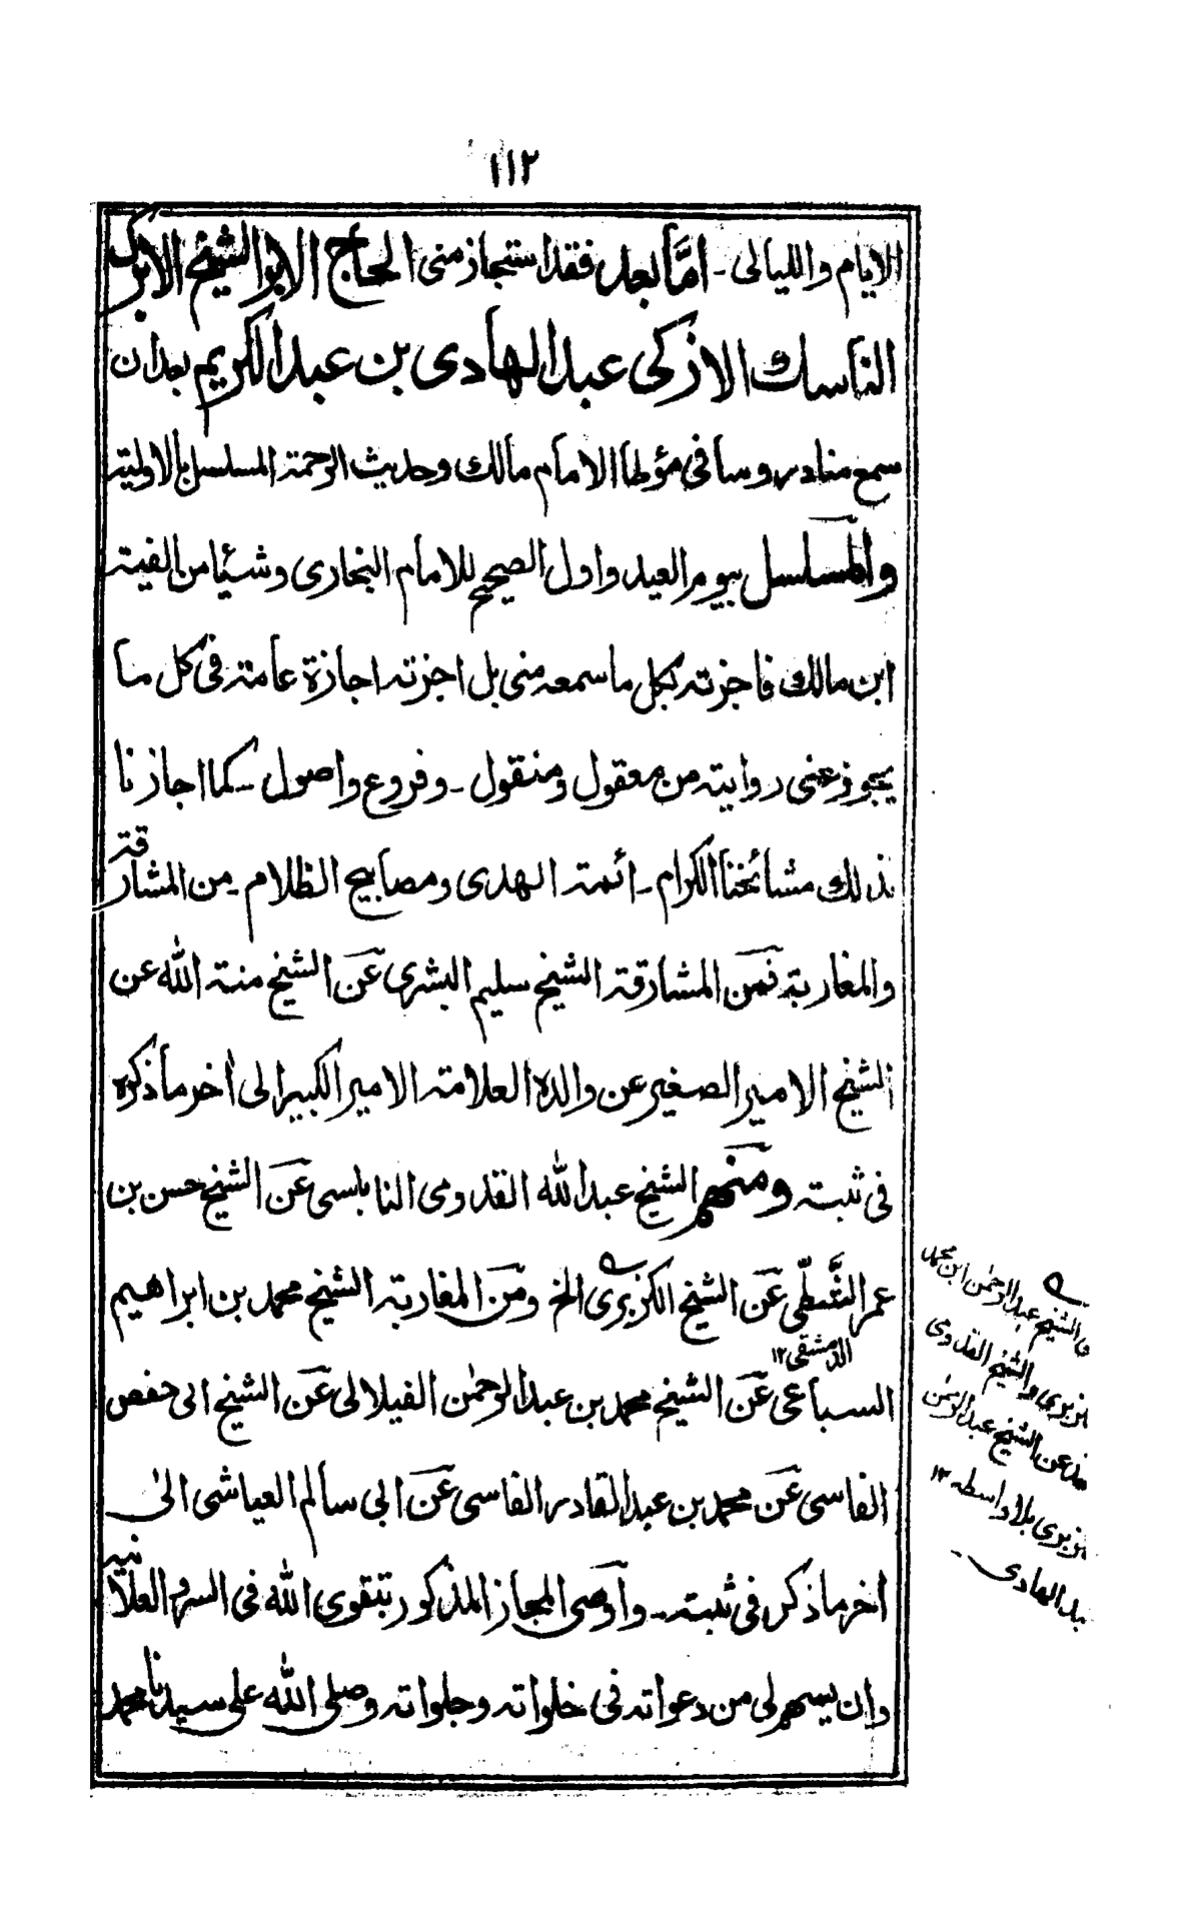 ١١٢
الايام والليالى ـ امّا بعد فقد استجاز منى الحاج الابر الشيخ الابرك
الناسك الازكى عبد الهادى بن عبد الكريم بعد ان
سمع منا دروسا فى مؤطا الامام مالك وحديث الرحمة المسلسل بالاولية
والمسلسل بيوم العيد واول الصحيح للامام البخارى وشيئا من الفية
ابن مالك فاجزته بكل ما سمعه منى بل اجزته اجازة عامة فى كل ما
يجوز عنى روايته من معقول ومنقول ـ وفروع واصول ـ كما اجازنا
بذلك مشائخنا الكرام ـ ائمة الهدى ومصابيح الظلام ـ من المشارقة
والمغاربة فمن المشارقة الشيخ سليم البشرى عن الشيخ منة الله عن
الشيخ الامير الصغير عن والده العلامة الامير الكبير الى اٰخر ما ذكره
فى ثبته ومنهم الشيخ عبد الله القدومى النابلسى عن الشيخ حسن بن
عمر الشّطّى عن الشيخ الكزبرى الخ ومن المغاربة الشيخ محمد بن ابراهيم
الدمشقى ١٢
السباعى عن الشيخ محمد بن عبد الرحمٰن الفيلالى عن الشيخ ابى حفص
الفاسى عن محمد بن عبد القادر الفاسى عن ابى سالم العياشى الىٰ
اٰخر ما ذكر فى ثبته ـ واوصى المجاز المذكور بتقوى الله فى السر والعلانية
وان يسهم لى من دعواته فى خلواته وجلواته وصلى الله على سيدنا محمد
الشيخ عبد الرحمٰن ابن محمد
والشيخ القدومى
عن الشيخ عبد الرحمٰن
بلا واسطه ١٢
عبد الهادى